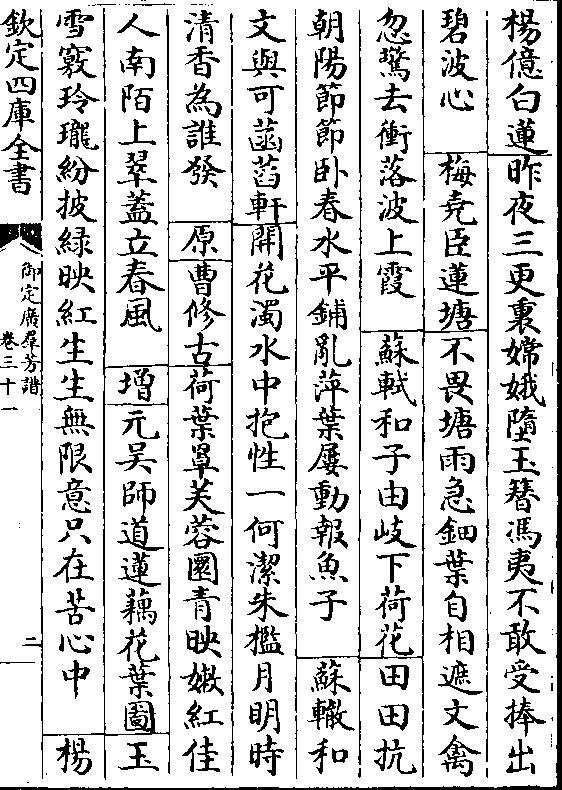 楊億白蓮昨夜三更裏嫦娥墮玉簪馮夷不敢受捧出
碧波心　梅堯臣蓮塘不畏塘雨急鈿葉自相遮文禽
忽驚去衝落波上霞　蘇軾和子由岐下荷花田田抗
朝陽節節卧春水平鋪亂萍葉屢動報魚子　蘇轍和
文與可菡萏軒開花濁水中抱性一何潔朱檻月明時
清香為誰發　原曹修古荷葉罩芙蓉圓青映嫩紅佳
人南陌上翠蓋立春風　增元吳師道蓮藕花葉圖玉
雪竅玲瓏紛披緑映紅生生無限意只在苦心中　楊
欽定四庫全書
御定廣羣芳譜
卷三十一
二